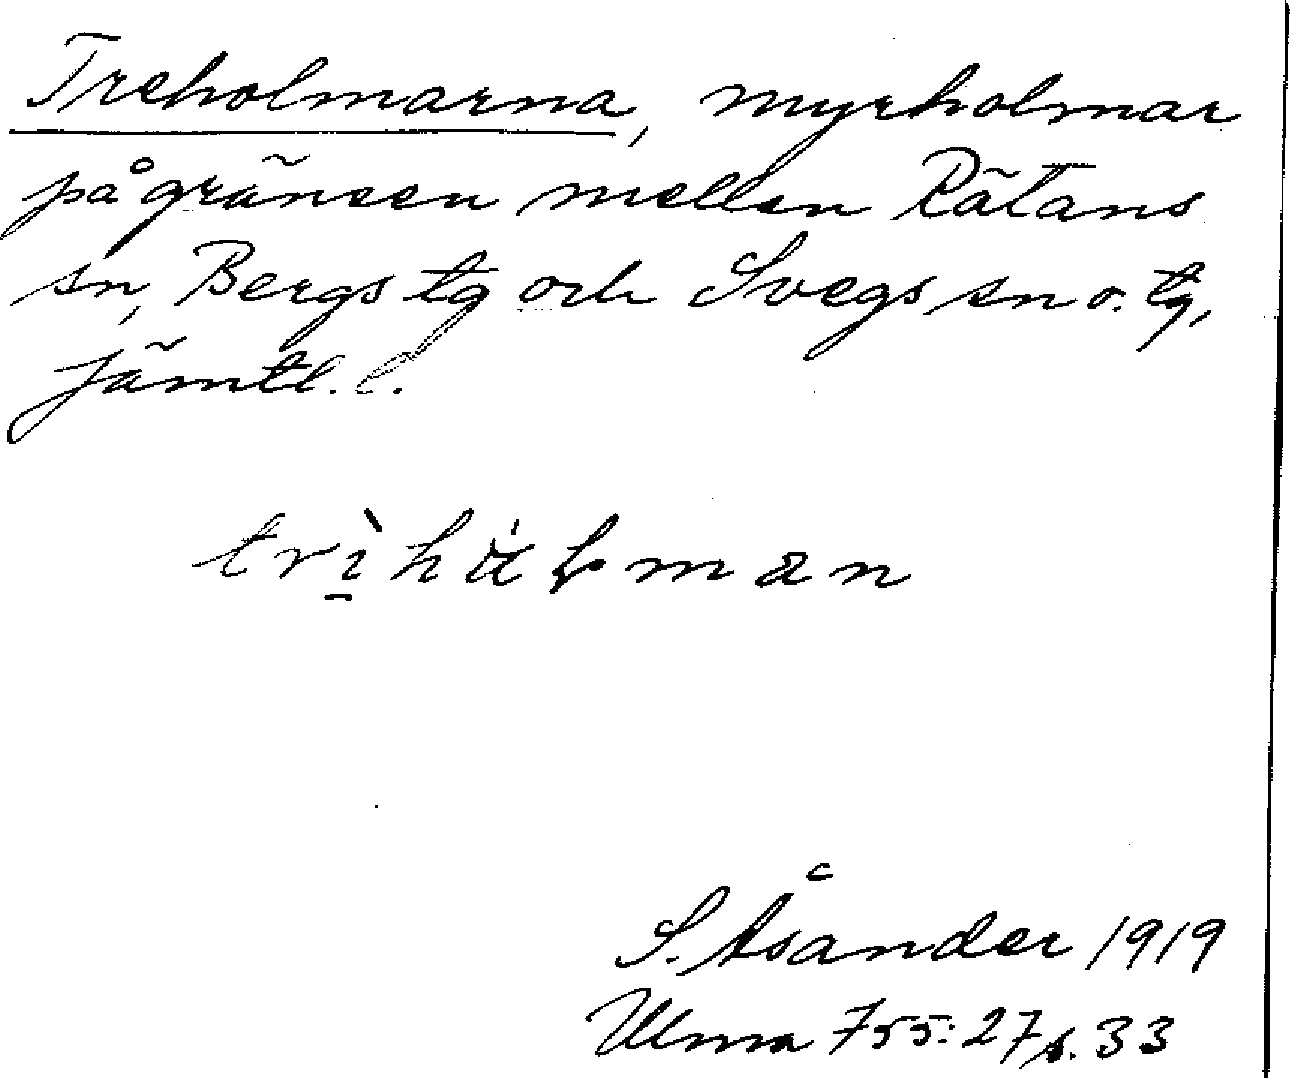 Treholmarna, myrholmar
på gränsen mellan Rätans
sn, Bergs tg och Svegs sn o. tg,
Jämtl. l.
S. Åsander 1919
Ulma 755:27 s. 33